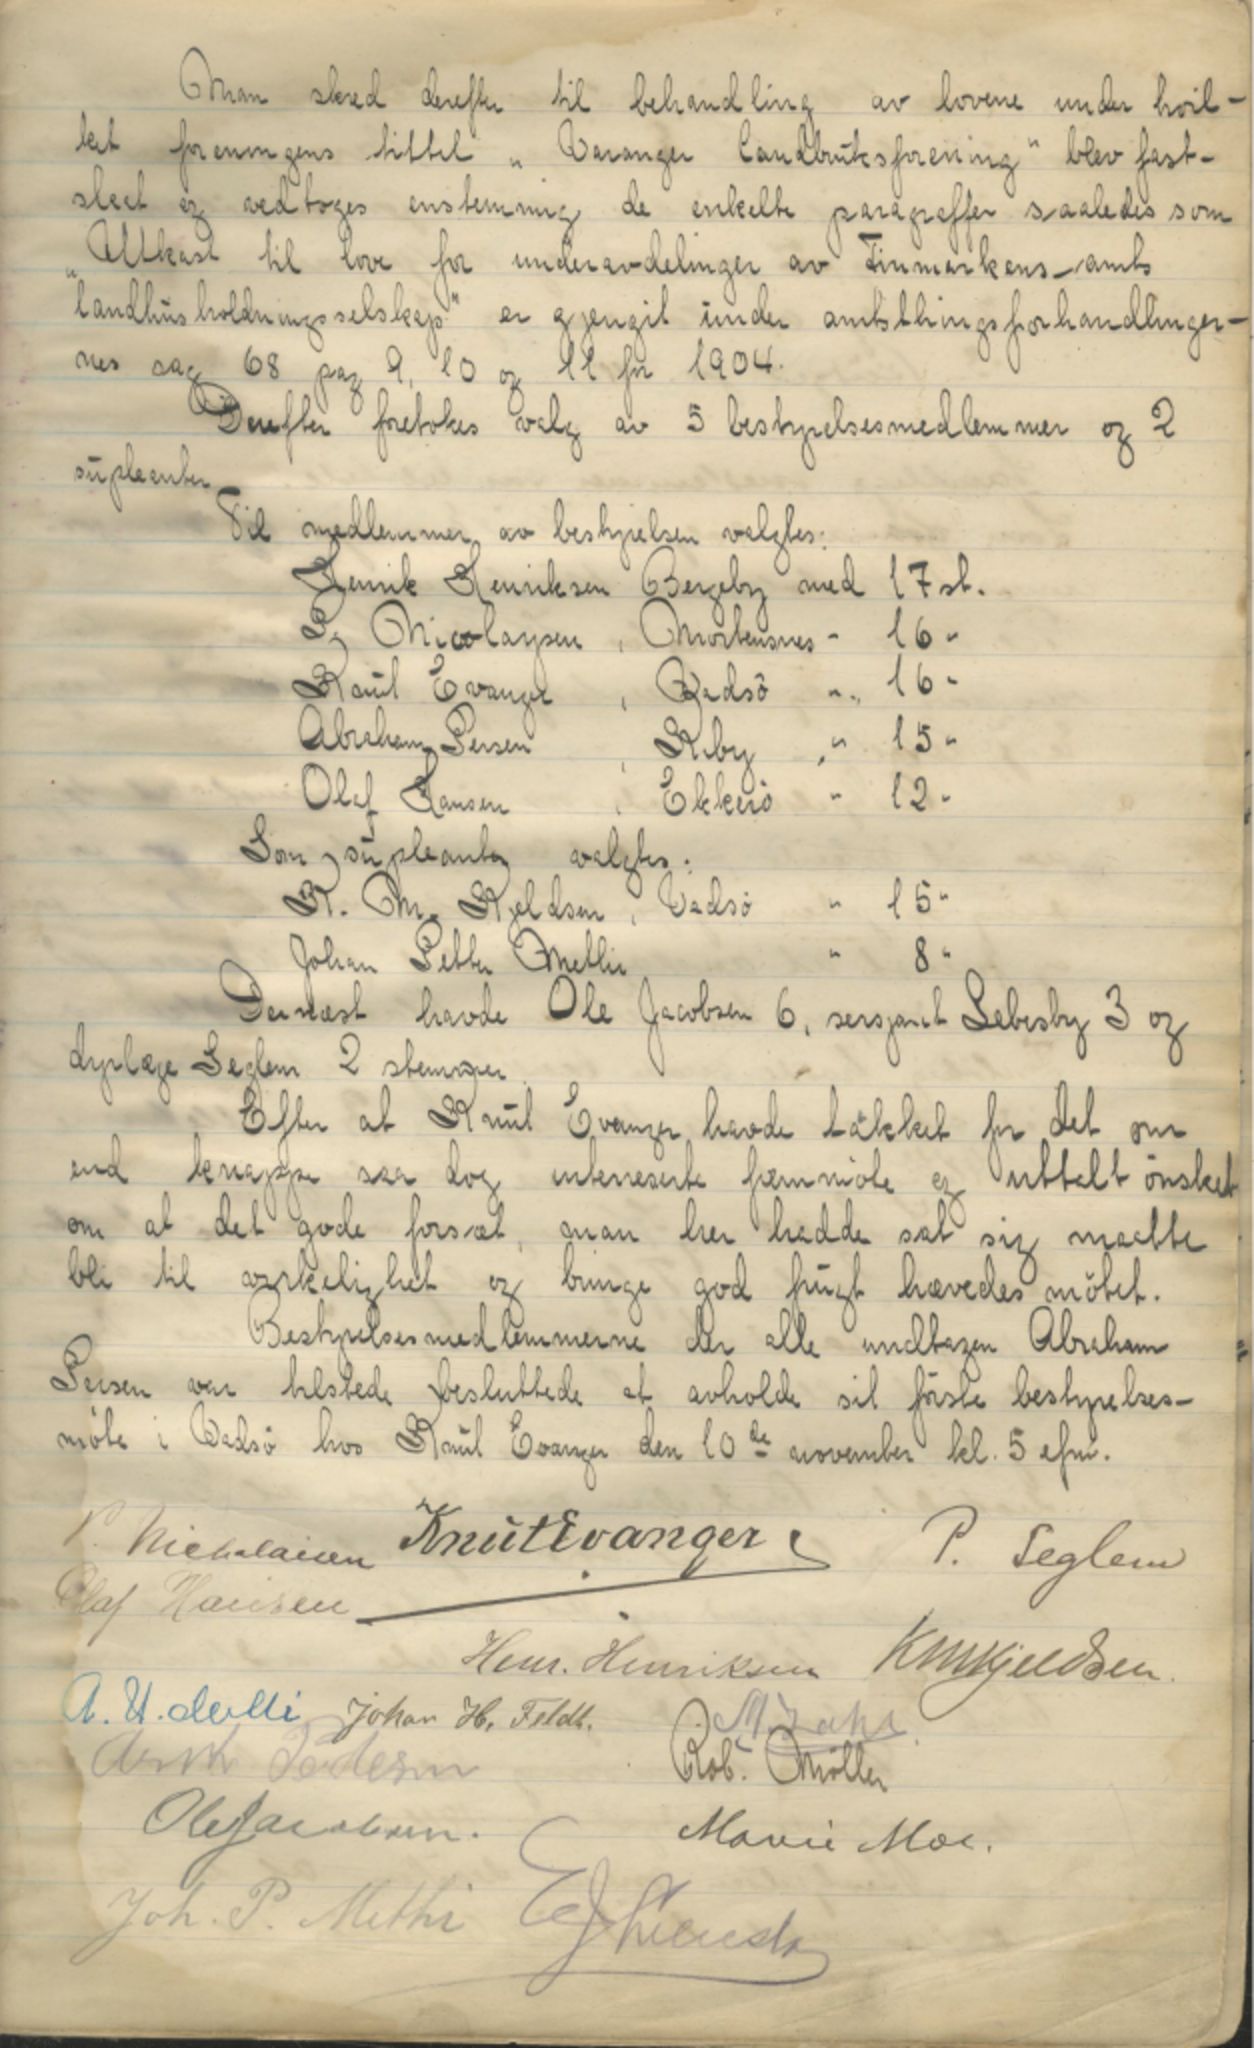 Man skred derefter til behandling av lovene under hvil-
ket foreningens tittel „Varanger Landbruksforening" blev fast-
slaat og vedtoges enstemmig de enkelte paragraffer saaledes som
„Utkast til love for underavdelinger av Finmarkens amts
landhusholdningsselskap" er gjengit under amtsthingsforhandlinger-
nes sag 68 pag 9, 10 og 11 for 1904.
Derefter foretokes valg av 5 bestyrelsesmedlemmer og 2
supleanter
Til medlemmer av bestyrelsen valgtes:
Henrik Henriksen Bergeby med 17 st.
P. Nicolaysen, Mortensnes - 16 "
Knut Evanger, Vadsö " 16 "
Abraham Persen, Kiby " 15 "
Olaf Hansen, Ekkerö " 12 "
Som supleanter valgtes:
K. M. Kjeldsen, Vadsö " 15 "
Johan Petter Methi " 8 "
Dernæst havde Ole Jacobsen 6, sersjant Lebesby 3 og
dyrlæge Seglem 2 stemmer.
Efter at Knut Evanger havde takket for det om
end knappe saa dog interreserte fremmöte og uttalt önsket
om at det gode forsæt, man her hadde sat sig maatte
bli til virkelighet og bringe god frugt hævedes mötet.
Bestyrelsesmedlemmerne der alle undtagen Abraham
Persen var tilstede besluttede at avholde sit förste bestyrelses-
möte i Vadsö hos Knut Evanger den 10de november kl. 5 efm.
P. Nickolaisen Knut Evanger P. Seglem
Olaf Hansen
Henr. Henriksen KMKjeldsen
Johan H. Feldt.
Pedersen Rob. Möller
Ole Jacobsen. Marie Moe.
Joh. P. Methi